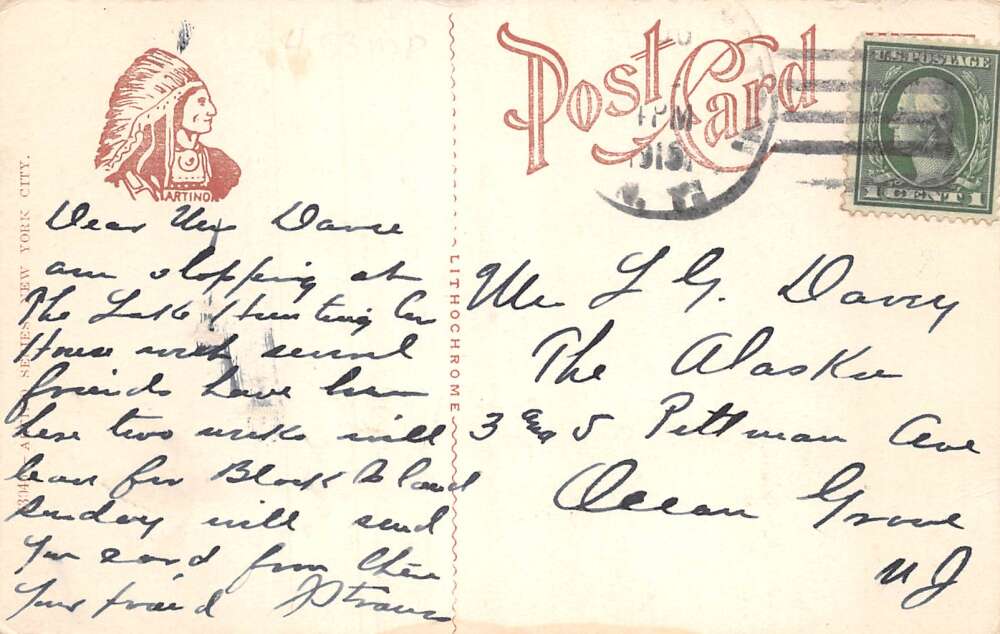 Post Card
ARTINO
SERIES NEW YORK CITY.
LITHOCHROME
PM
1915
N.Y.
U.S. POSTAGE
1 CENT 1
Dear Mr
am stopping at
The Lake Hunting
House with several
friends have been
here two weeks will
leave for Block Island
Sunday will send
you card from there
Your friend J Straus
Mr L G. Davey
The Alaska
3 and 5 Pittman Ave
Ocean Grove
NJ